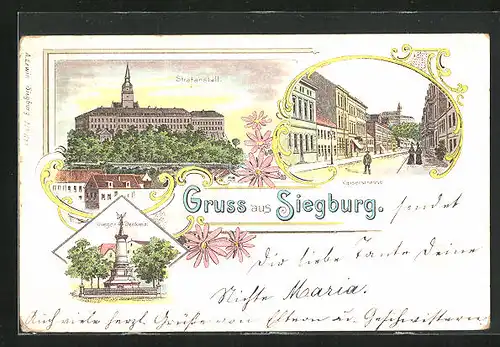 Strafanstalt.
Kaiserstrasse
Krieger-Denkmal
Gruss aus Siegburg.
sendet
Dir liebe Tante Deine
Nichte Maria.
Auch viele herzl. Grüße von Eltern u. Geschwistern.